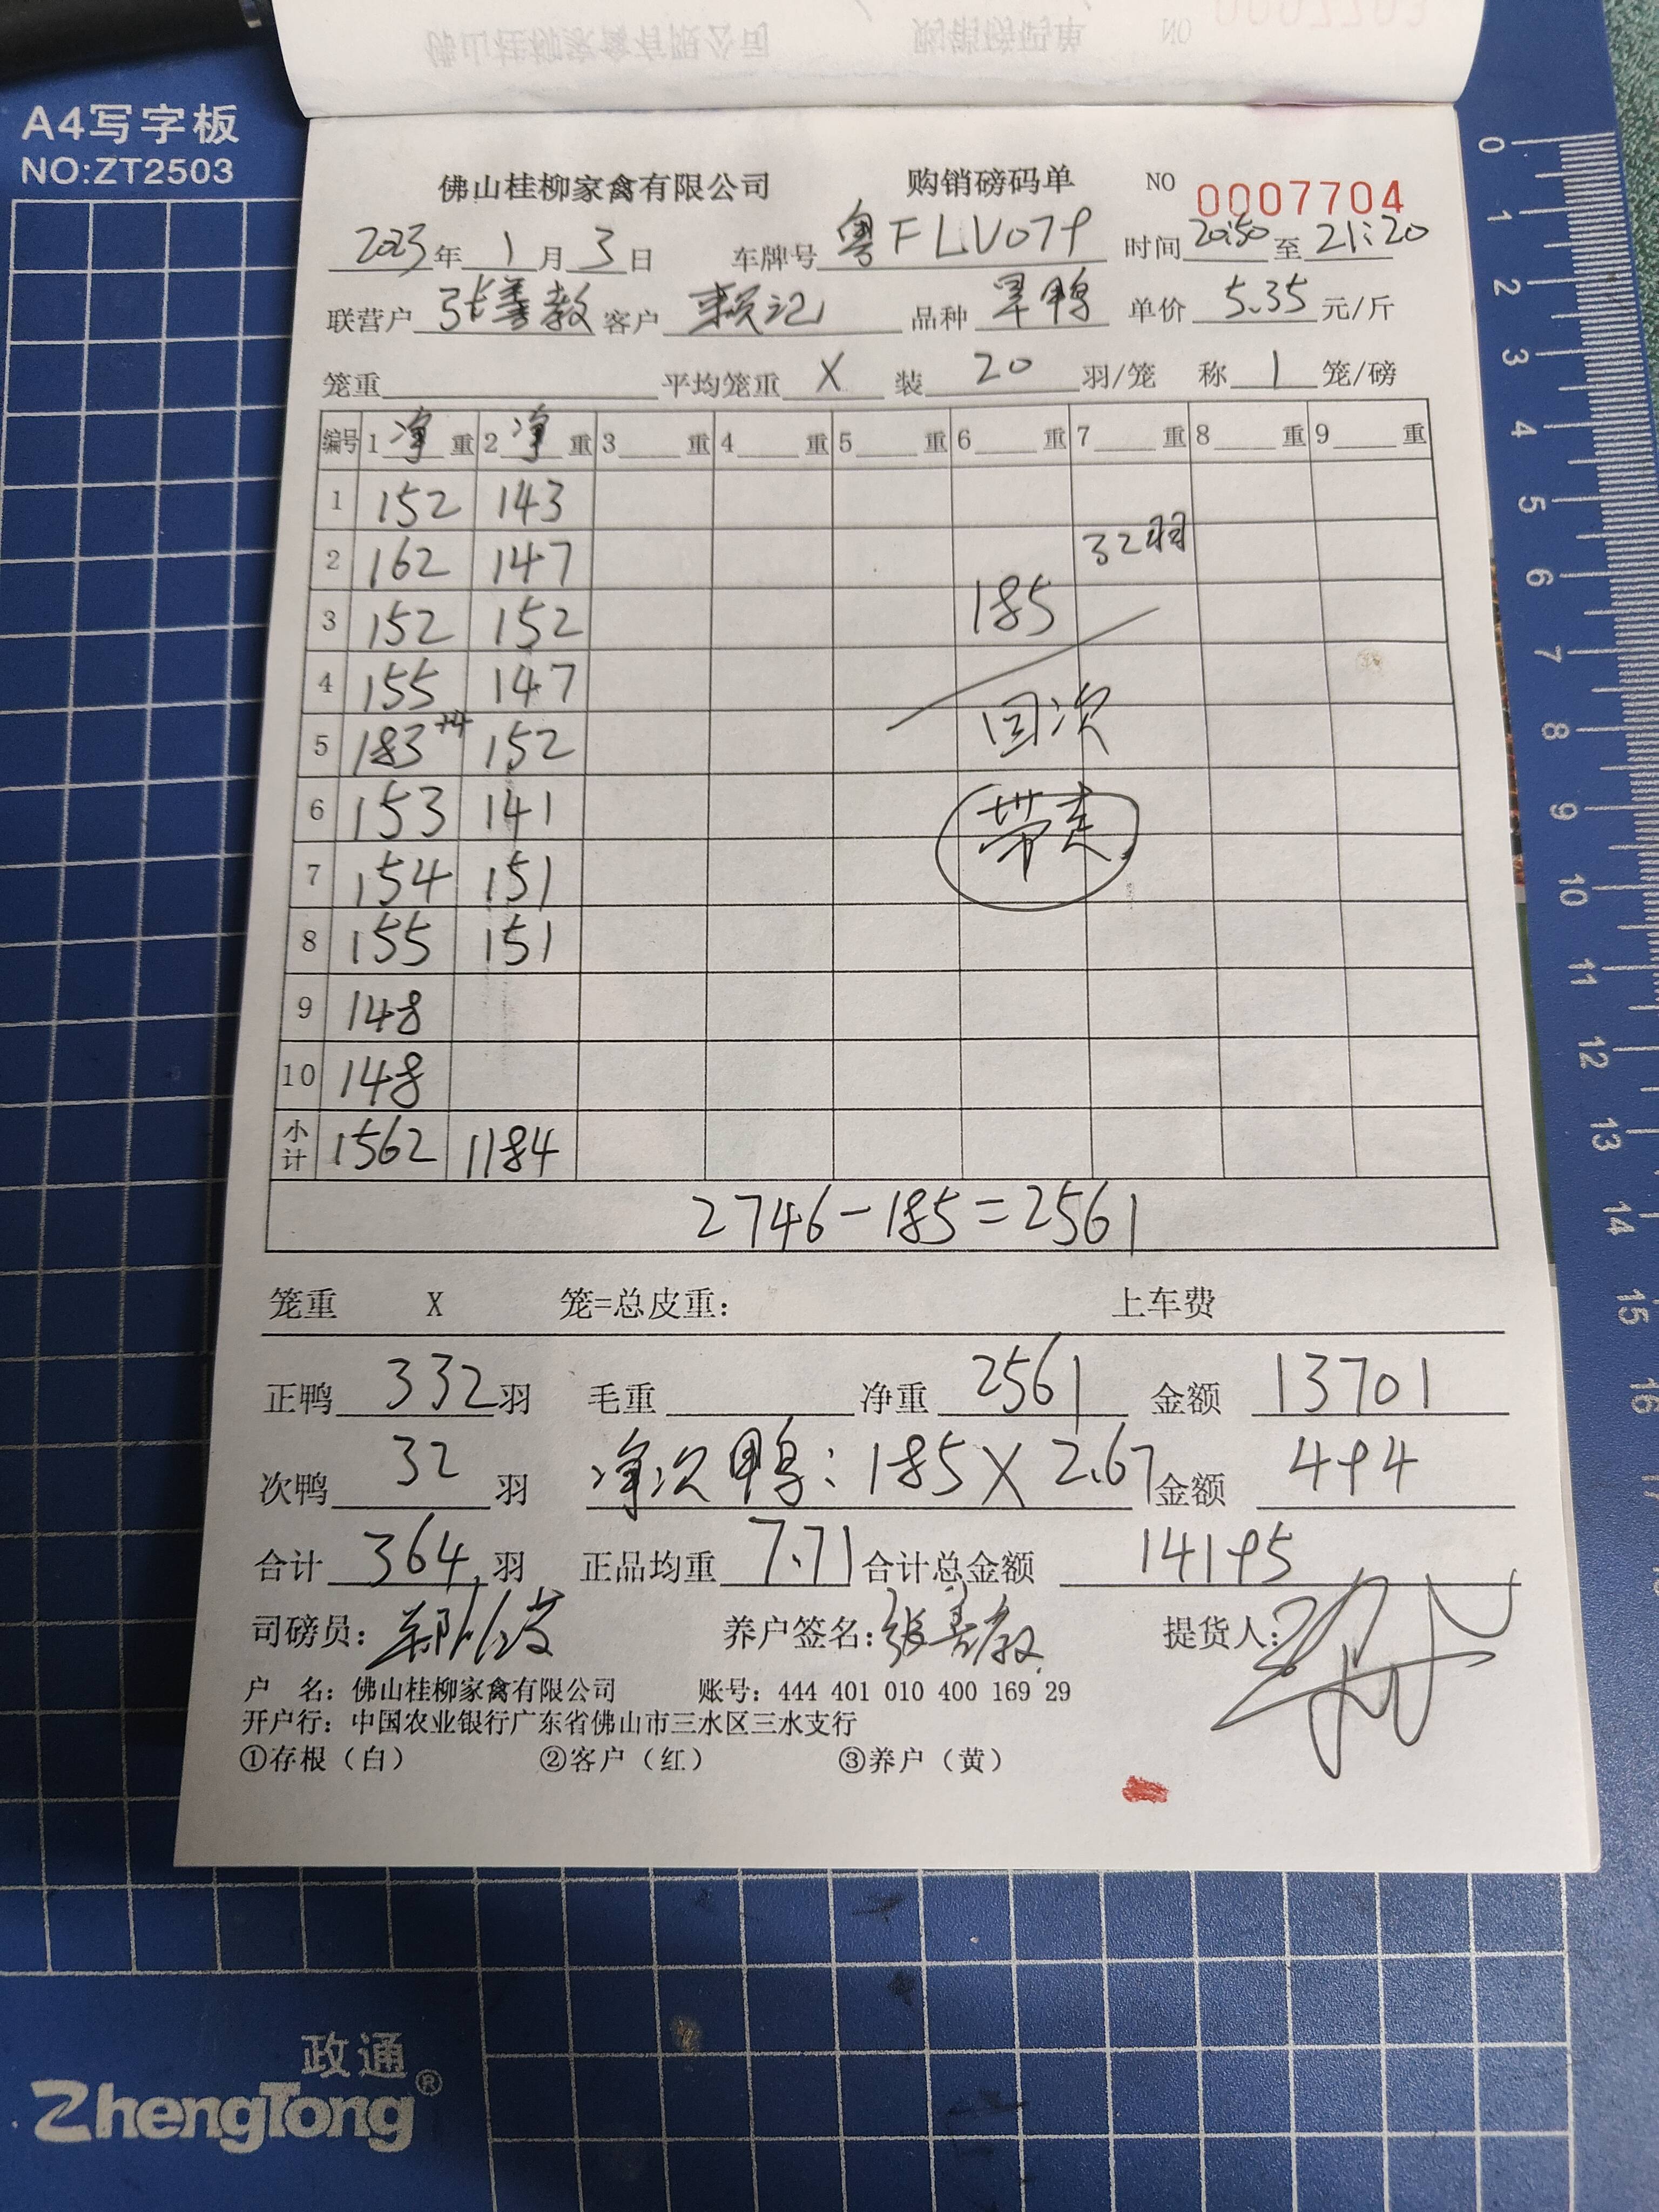 A4写字板
NO:ZT2503
佛山桂柳家禽有限公司 购销磅码单 NO 0007704
2023年1月3日 车牌号 粤FLV079 时间 20:50 至 21:20
联营户 张善教 客户 赖记 品种 旱鸭 单价 5.35 元/斤
笼重 平均笼重 X 装 20 羽/笼 称 1 笼/磅
编号 1 净 重 2 净 重 3 重 4 重 5 重 6 重 7 重 8 重 9 重
1 152 143
2 162 147 32羽
3 152 152 185
4 155 147 回次
5 183+4 152
6 153 141 带走
7 154 151
8 155 151
9 148
10 148
小计 1562 1184
2746-185=2561
笼重 X 笼=总皮重: 上车费
正鸭 332 羽 毛重 净重 2561 金额 13701
次鸭 32 羽 净次鸭: 185X2.67 金额 494
合计 364 羽 正品均重 7.71 合计总金额 14195
司磅员: 养户签名: 张善教 提货人:
户 名: 佛山桂柳家禽有限公司 账号: 444 401 010 400 169 29
开户行: 中国农业银行广东省佛山市三水区三水支行
①存根(白) ②客户(红) ③养户(黄)
0
1
2
3
4
5
6
7
8
9
10
11
12
13
14
15
16
17
政通
ZhengTong®